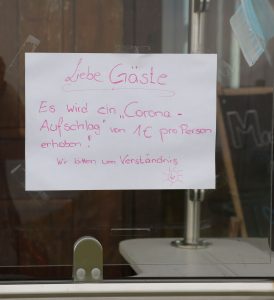 Liebe Gäste
Es wird ein „Corona -
Aufschlag" von 1€ pro Person
erhoben!
Wir bitten um Verständnis